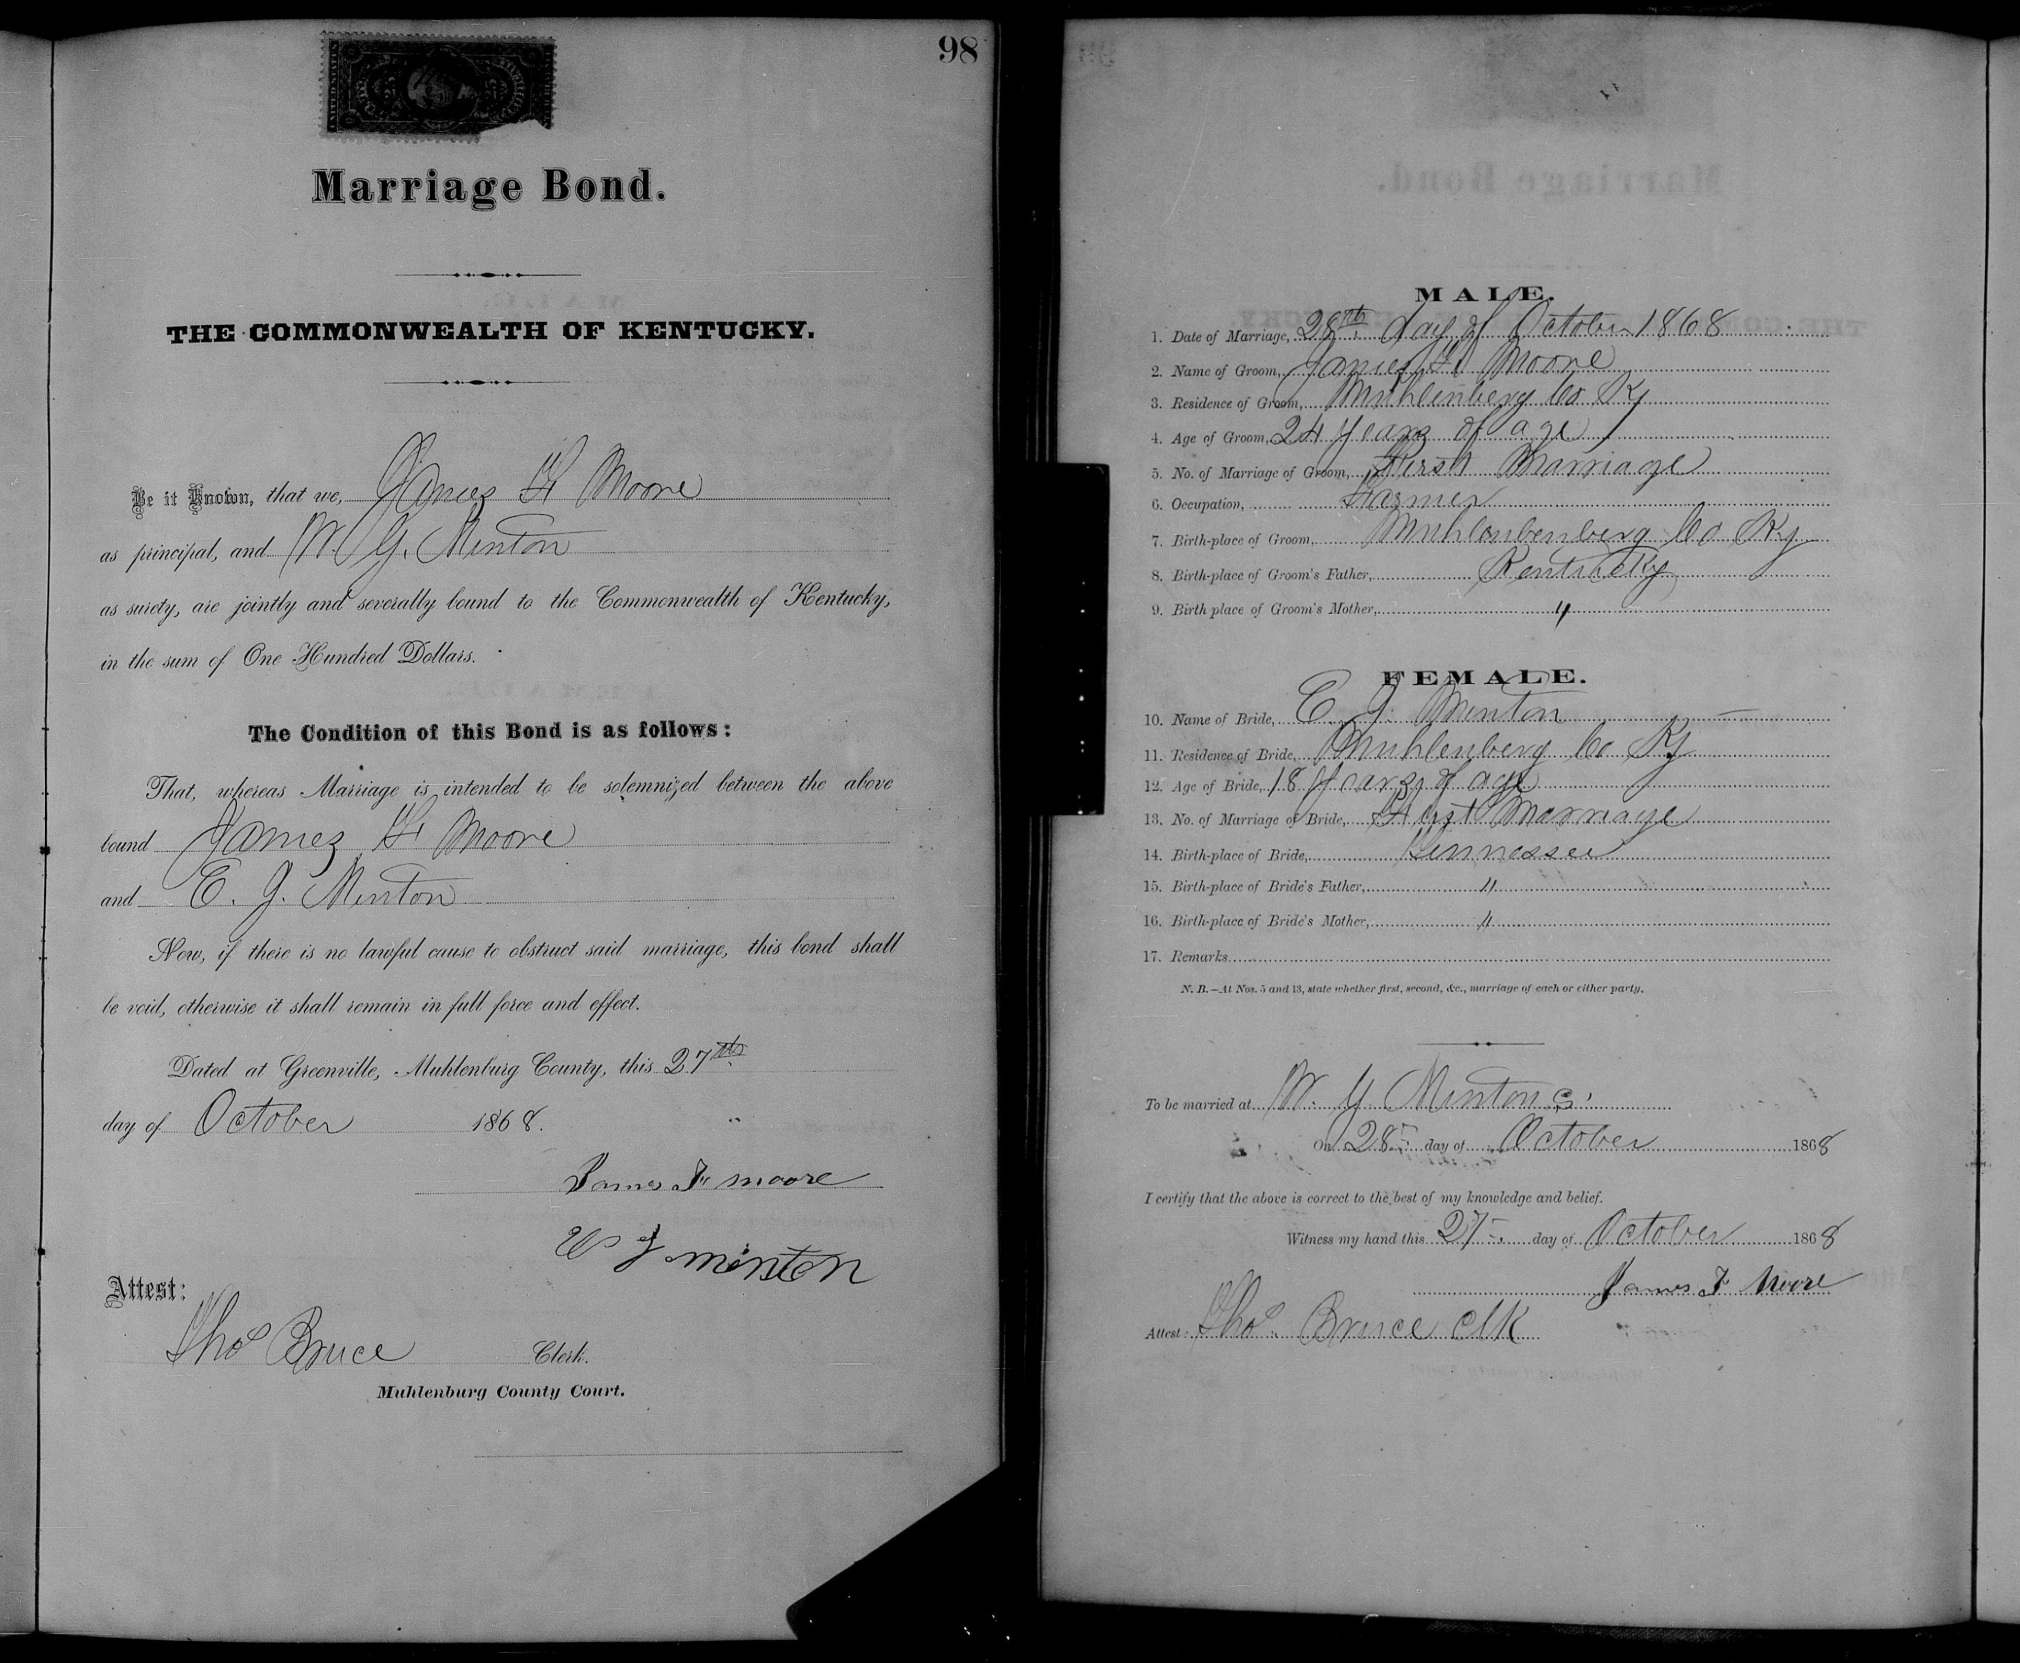 98
Marriage Bond.
THE COMMONWEALTH OF KENTUCKY.
Be it Known, that we, James F Moore
as principal, and W. G. Minton
as surety, are jointly and severally bound to the Commonwealth of Kentucky,
in the sum of One Hundred Dollars.
The Condition of this Bond is as follows:
That, whereas Marriage is intended to be solemnized between the above
bound James F Moore
and E. J. Minton
Now, if there is no lawful cause to obstruct said marriage, this bond shall
be void, otherwise it shall remain in full force and effect.
Dated at Greenville, Muhlenburg County, this 27th
day of October 1868.
James F Moore
W G Minton
Attest:
Thos Bruce Clerk.
Muhlenburg County Court.
MALE.
1. Date of Marriage, 28th day of October 1868
2. Name of Groom, James F Moore
3. Residence of Groom, Muhlenberg Co Ky
4. Age of Groom, 24 years of age
5. No. of Marriage of Groom, First Marriage
6. Occupation, Farmer
7. Birth-place of Groom, Muhlenberg Co Ky
8. Birth-place of Groom's Father, Kentucky
9. Birth place of Groom's Mother, "
FEMALE.
10. Name of Bride, E J Minton
11. Residence of Bride, Muhlenberg Co Ky
12. Age of Bride, 18 years of age
13. No. of Marriage of Bride, First Marriage
14. Birth-place of Bride, Tennessee
15. Birth-place of Bride's Father, "
16. Birth-place of Bride's Mother, "
17. Remarks
N. B.—At Nos. 5 and 13, state whether first, second, &c., marriage of each or either party.
To be married at W. G Minton's
On 28 day of October 1868
I certify that the above is correct to the best of my knowledge and belief.
Witness my hand this 27 day of October 1868
James F Moore
Attest: Thos Bruce Clk